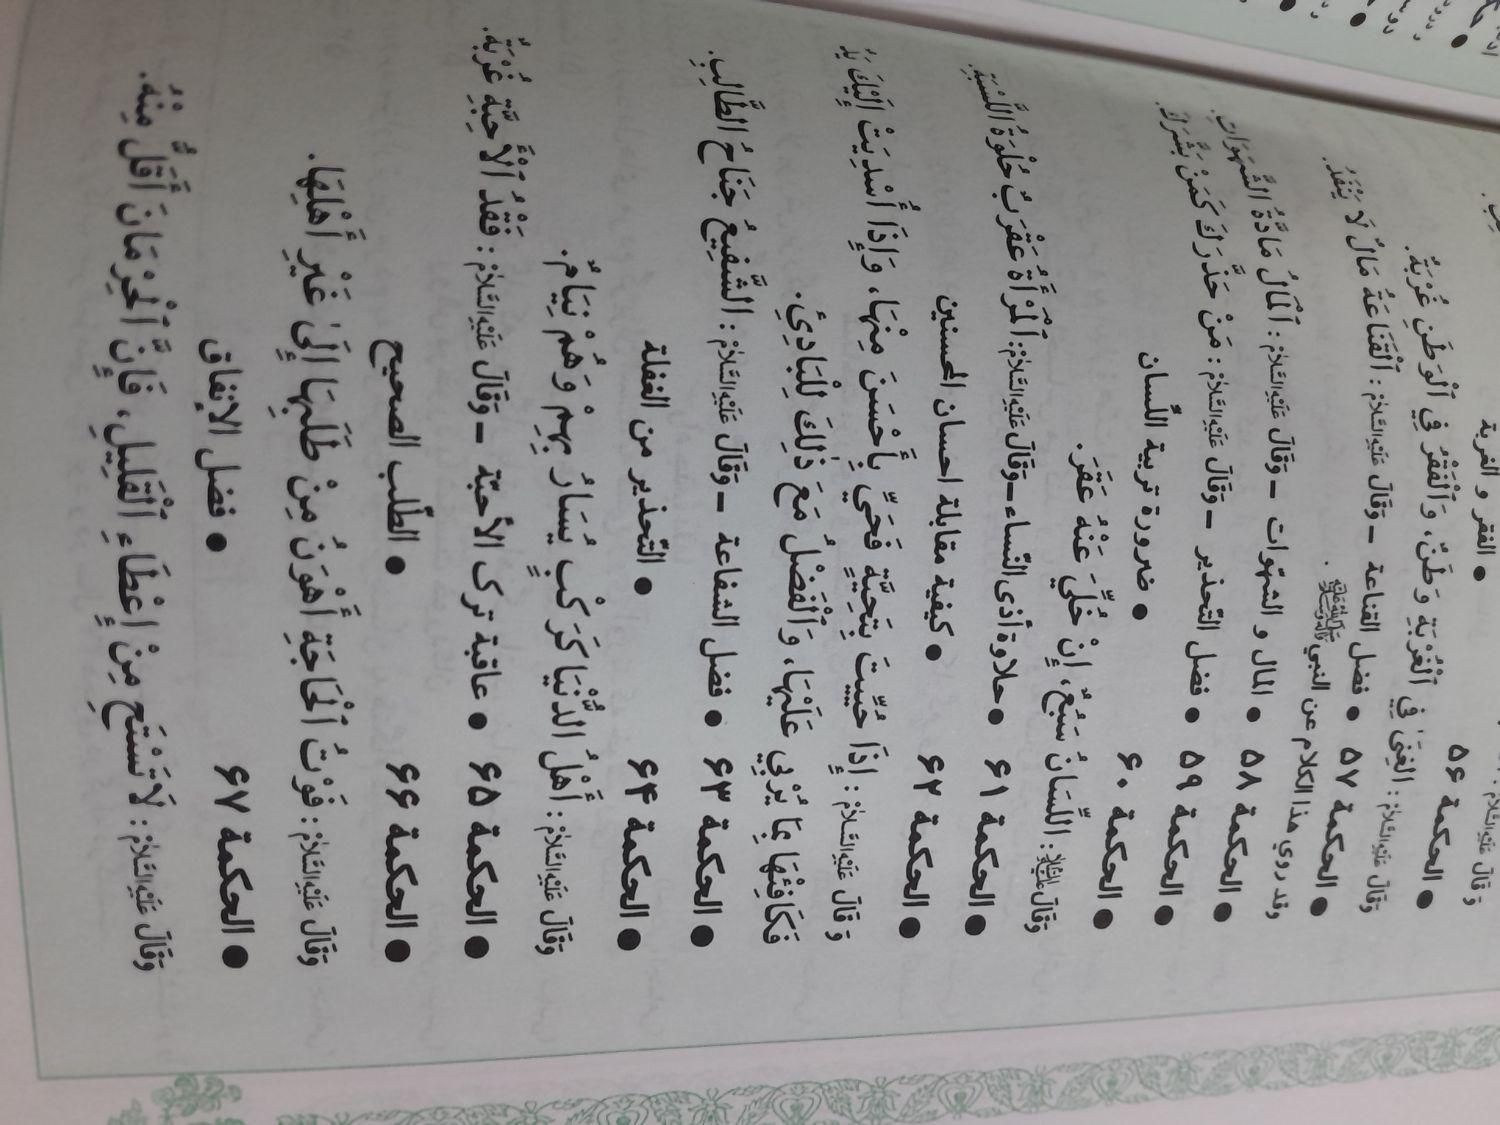 ● الفقر و الغربة
● الحكمة ۵۶
وَ قَالَ عَلَيْهِ السَّلَامُ: الْغِنَىٰ فِي اَلْغُرْبَةِ وَطَنٌ، وَ اَلْفَقْرُ فِي اَلْوَطَنِ غُرْبَةٌ.
● الحكمة ۵۷ ● فضل القناعة – وَ قَالَ عَلَيْهِ السَّلَامُ: اَلْقَنَاعَةُ مَالٌ لَا يَنْفَدُ.
و قد روي هذا الكلام عن النبي ﷺ.
● الحكمة ۵۸ ● المال و الشهوات – وَ قَالَ عَلَيْهِ السَّلَامُ: اَلْمَالُ مَادَّةُ الشَّهَوَاتِ.
● الحكمة ۵۹ ● فضل التّحذير – وَ قَالَ عَلَيْهِ السَّلَامُ: مَنْ حَذَّرَكَ كَمَنْ بَشَّرَكَ.
● الحكمة ۶۰ ● ضرورة تربية اللّسان
وَ قَالَ عَلَيْهِ السَّلَامُ: اَللِّسَانُ سَبُعٌ، إِنْ خُلِّيَ عَنْهُ عَقَرَ.
● الحكمة ۶۱ ● حلاوة أذى النّساء – وَ قَالَ عَلَيْهِ السَّلَامُ: اَلْمَرْأَةُ عَقْرَبٌ حُلْوَةُ اللَّسْبَةِ.
● الحكمة ۶۲ ● كيفية مقابلة احسان المحسنين
وَ قَالَ عَلَيْهِ السَّلَامُ: إِذَا حُيِّيتَ بِتَحِيَّةٍ فَحَيِّ بِأَحْسَنَ مِنْهَا، وَ إِذَا أُسْدِيَتْ إِلَيْكَ يَدٌ
فَكَافِئْهَا بِمَا يُرْبِي عَلَيْهَا، وَ اَلْفَضْلُ مَعَ ذٰلِكَ لِلْبَادِئِ.
● الحكمة ۶۳ ● فضل الشفاعة – وَ قَالَ عَلَيْهِ السَّلَامُ: الشَّفِيعُ جَنَاحُ الطَّالِبِ.
● الحكمة ۶۴ ● التّحذير من الغفلة
وَ قَالَ عَلَيْهِ السَّلَامُ: أَهْلُ الدُّنْيَا كَرَكْبٍ يُسَارُ بِهِمْ وَ هُمْ نِيَامٌ.
● الحكمة ۶۵ ● عاقبة ترك الأحبّة – وَ قَالَ عَلَيْهِ السَّلَامُ: فَقْدُ اَلْأَحِبَّةِ غُرْبَةٌ.
● الحكمة ۶۶ ● الطّلب الصحيح
وَ قَالَ عَلَيْهِ السَّلَامُ: فَوْتُ اَلْحَاجَةِ أَهْوَنُ مِنْ طَلَبِهَا إِلَىٰ غَيْرِ أَهْلِهَا.
● الحكمة ۶۷ ● فضل الإنفاق
وَ قَالَ عَلَيْهِ السَّلَامُ: لَا تَسْتَحِ مِنْ إِعْطَاءِ اَلْقَلِيلِ، فَإِنَّ اَلْحِرْمَانَ أَقَلُّ مِنْهُ.